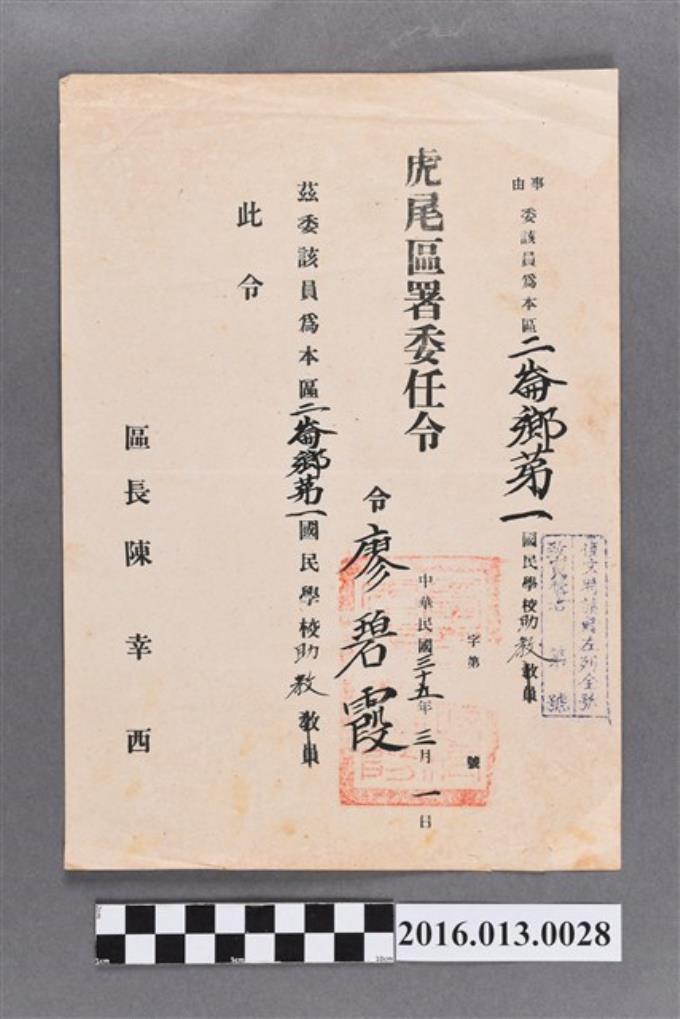 事由
委該員爲本區二崙鄉第一國民學校助教教員
虎尾區署委任令
字第 號
中華民國三十五年三月一日
令廖碧霞
茲委該員爲本區二崙鄉第一國民學校助教教員
此令
區長陳幸西
2016.013.0028
1cm
5cm
10cm